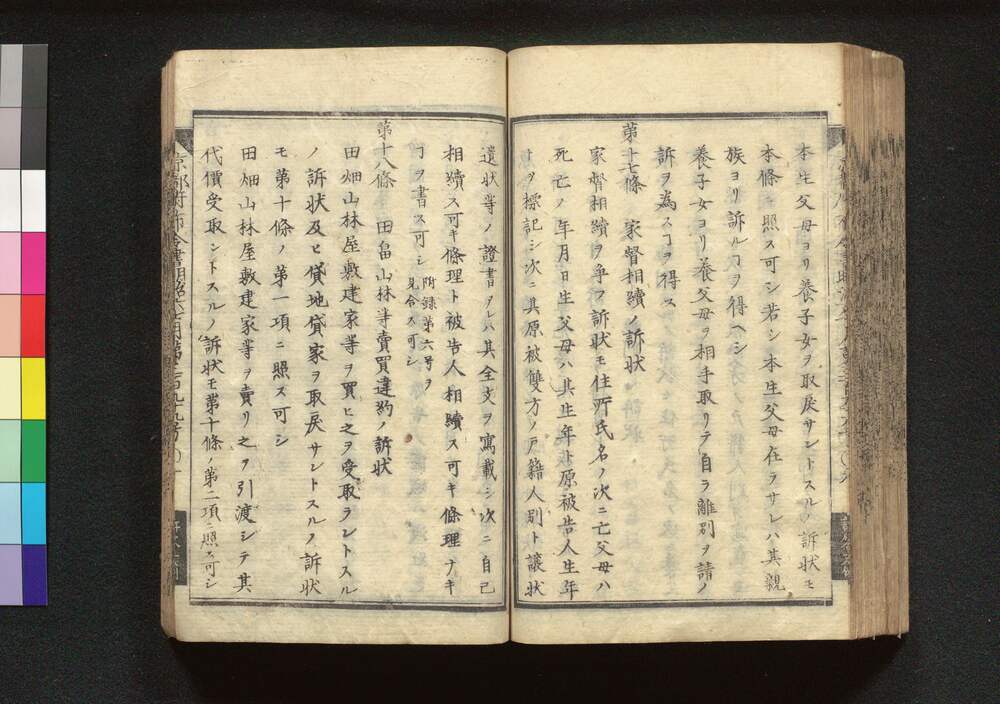 本生父母ヨリ養子女ヲ取戻サントスルノ訴状モ
本條ニ照ス可シ若シ本生父母在ラサレハ其親
族ヨリ訴ルヿヲ得ヘシ
養子女ヨリ養父母ヲ相手取リテ自ラ離別ヲ請ノ
訴ヲ為スヿヲ得ス
第十七條 家督相續ノ訴状
家督相續ヲ争フ訴状モ住所氏名ノ次ニ亡父母ハ
死亡ノ年月日生父母ハ其生年ト原被告人生年
トヲ標記シ次ニ其原被雙方ノ戸籍人別ト譲状
遺状等ノ證書アレハ其全文ヲ寫載シ次ニ自己
相續ス可キ條理ト被告人相續ス可キ條理ナキ
ヿヲ書ス可シ 附録第六号ヲ
見合ス可シ
第十八條 田畠山林等賣買違約ノ訴状
田畑山林屋敷建家等ヲ買ヒ之ヲ受取ラントスル
ノ訴状及ヒ貸地貸家ヲ取戻サントスルノ訴状
モ第十條ノ第一項ニ照ス可シ
田畑山林屋敷建家等ヲ賣リ之ヲ引渡シテ其
代價受取ントスルノ訴状モ第十條ノ第二項ニ照ス可シ
京都府布令書明治六年